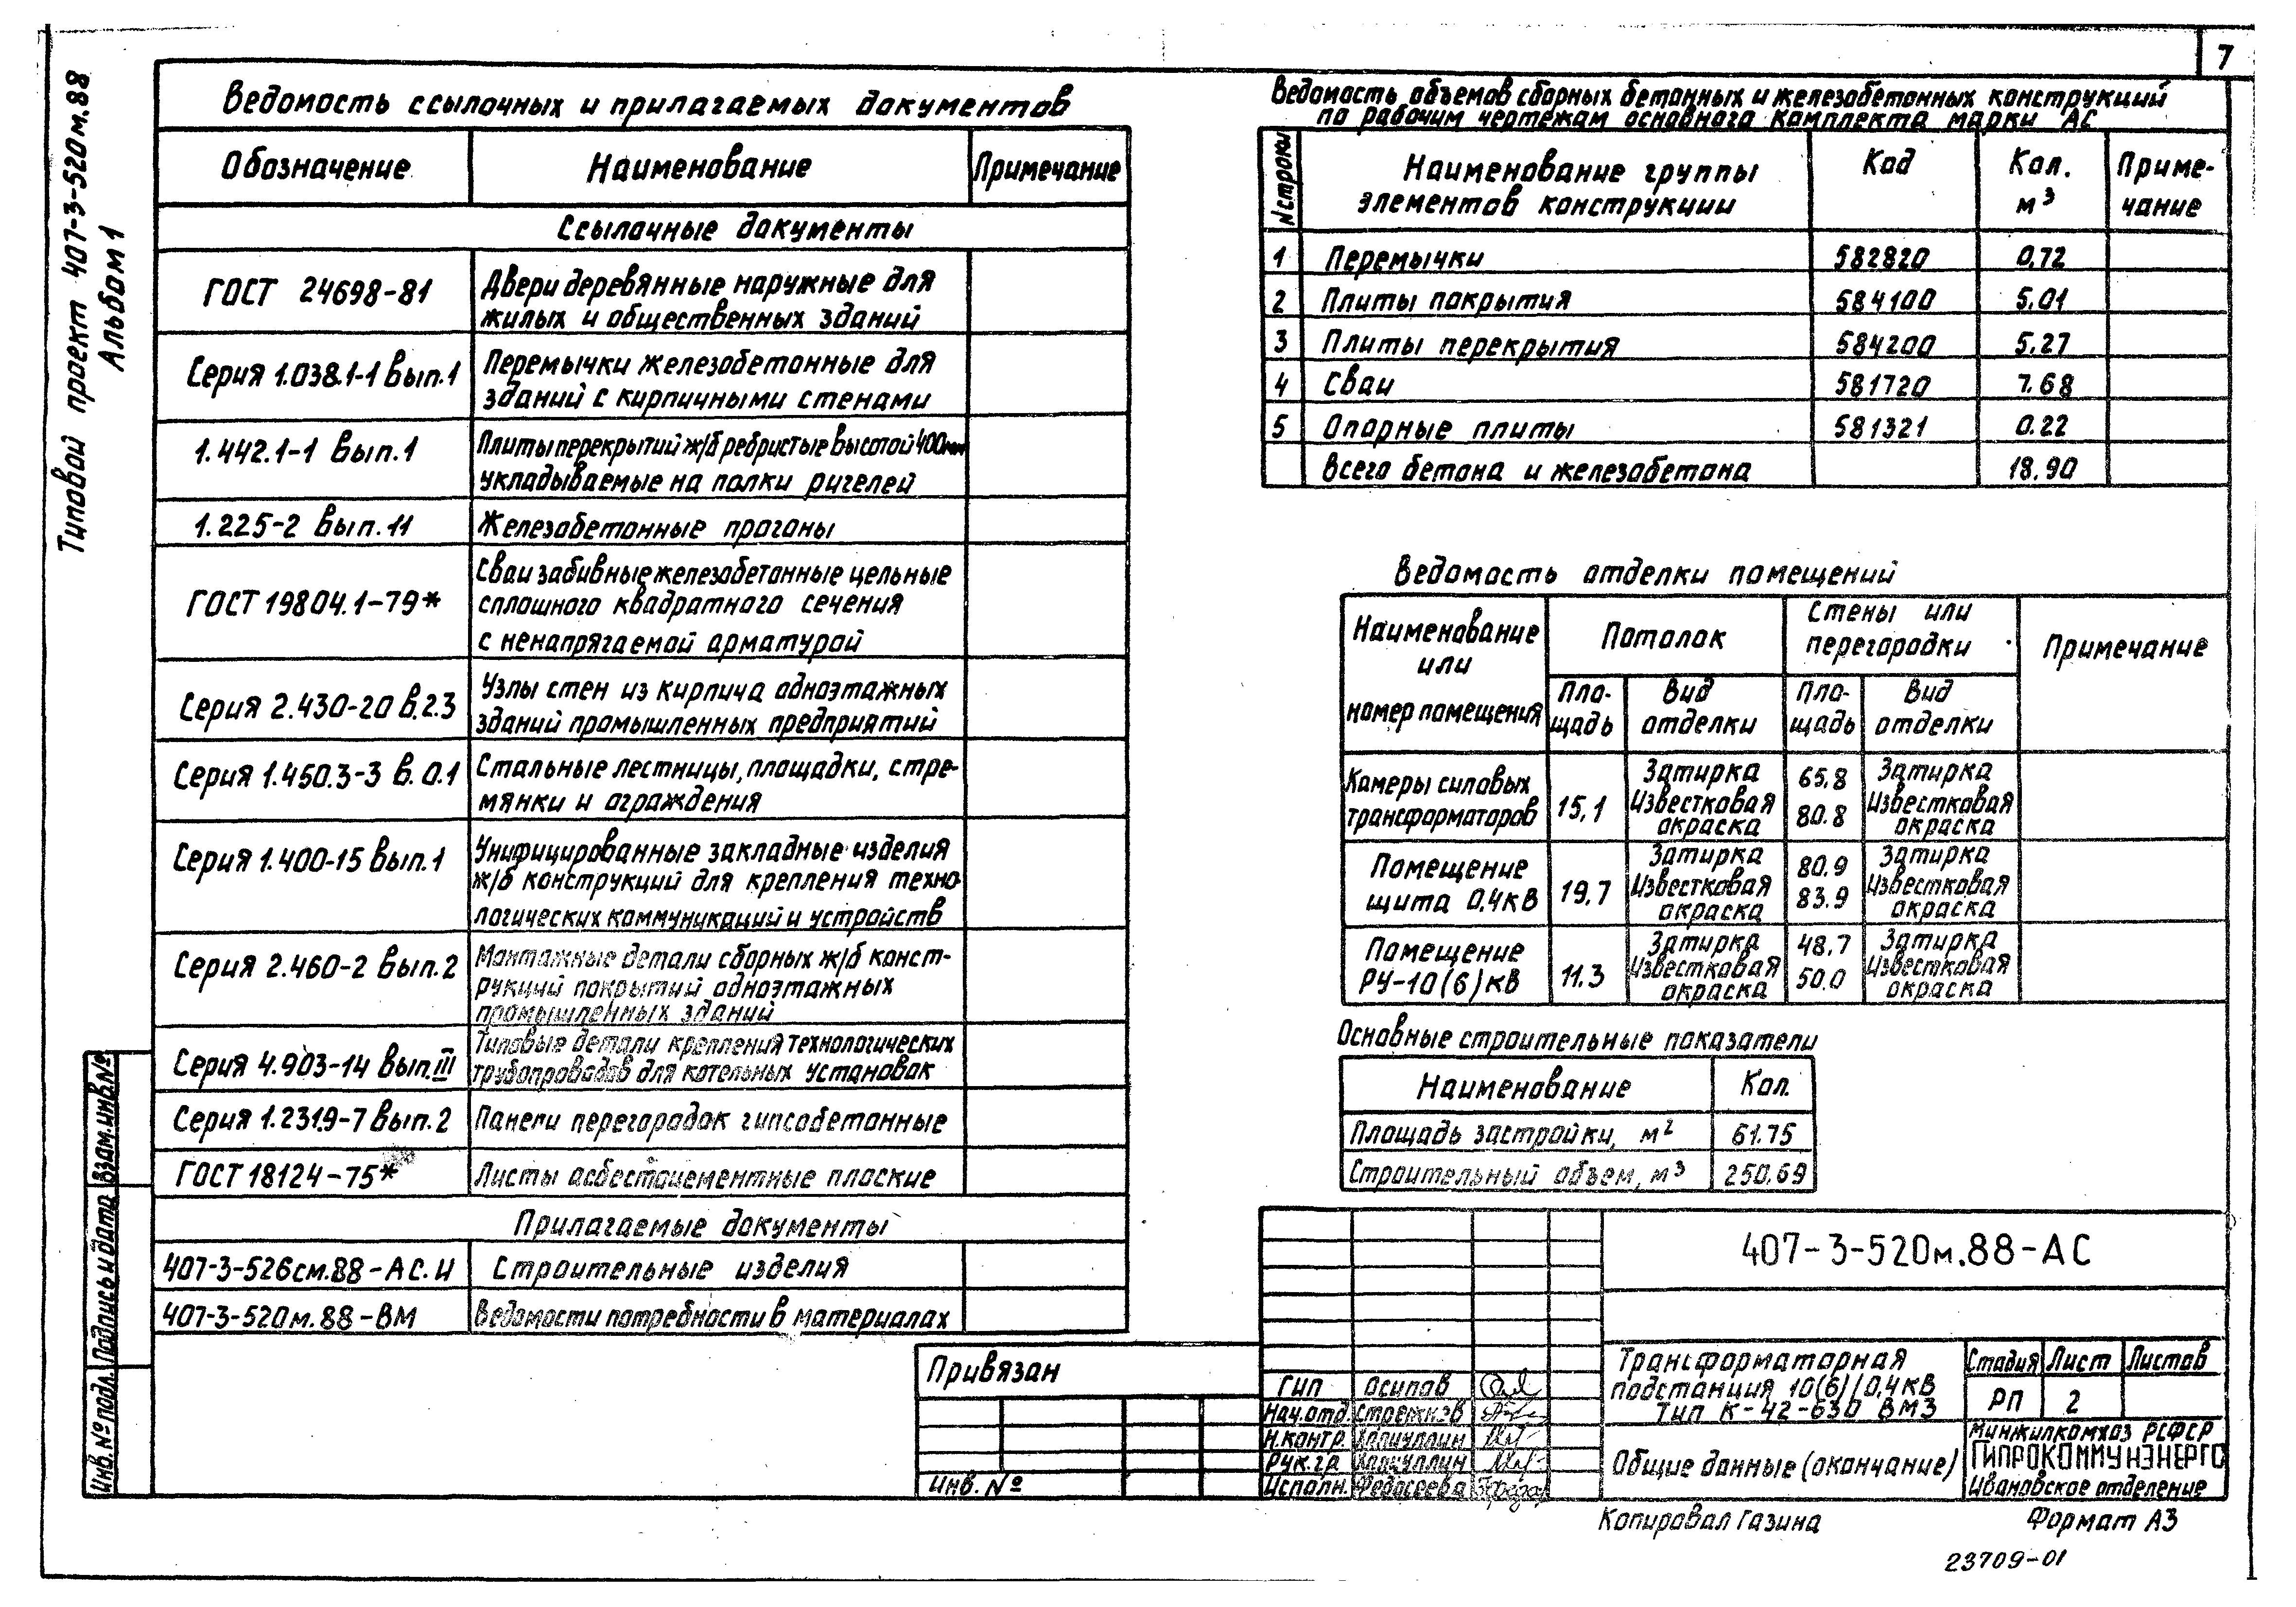 7
Типовой проект 407-3-520м.88
Альбом 1
Ведомость ссылочных и прилагаемых документов
Обозначение Наименование Примечание
Ссылочные документы
ГОСТ 24698-81 Двери деревянные наружные для
жилых и общественных зданий
Серия 1.038.1-1 Вып.1 Перемычки железобетонные для
зданий с кирпичными стенами
1.442.1-1 Вып.1 Плиты перекрытий ж/б ребристые высотой 400мм
укладываемые на полки ригелей
1.225-2 Вып.11 Железобетонные прогоны
ГОСТ 19804.1-79* Сваи забивные железобетонные цельные
сплошного квадратного сечения
с ненапрягаемой арматурой
Серия 2.430-20 в.2.3 Узлы стен из кирпича одноэтажных
зданий промышленных предприятий
Серия 1.450.3-3 в.0.1 Стальные лестницы, площадки, стре-
мянки и ограждения
Серия 1.400-15 Вып.1 Унифицированные закладные изделия
ж/б конструкций для крепления техно-
логических коммуникаций и устройств
Серия 2.460-2 Вып.2 Монтажные детали сборных ж/б конст-
рукций покрытий одноэтажных
промышленных зданий
Серия 4.903-14 Вып.III Типовые детали крепления технологических
трубопроводов для котельных установок
Серия 1.231.9-7 Вып.2 Панели перегородок гипсобетонные
ГОСТ 18124-75* Листы асбестоцементные плоские
Прилагаемые документы
407-3-526см.88-АС.И Строительные изделия
407-3-520м.88-ВМ Ведомости потребности в материалах
Ведомость объемов сборных бетонных и железобетонных конструкций
по рабочим чертежам основного комплекта марки АС
№ строки Наименование группы
элементов конструкции Код Кол.
м³ Приме-
чание
1 Перемычки 582820 0,72
2 Плиты покрытия 584100 5.01
3 Плиты перекрытия 584200 5.27
4 Сваи 581720 7.68
5 Опорные плиты 581321 0.22
Всего бетона и железобетона 18.90
Ведомость отделки помещений
Наименование
или
номер помещения
Потолок
Стены или
перегородки
Примечание
Пло-
щадь
Вид
отделки
Пло-
щадь
Вид
отделки
Камеры силовых
трансформаторов
15,1
Затирка
Известковая
окраска
65.8
80.8
Затирка
Известковая
окраска
Помещение
щита 0,4кВ
19,7
Затирка
Известковая
окраска
80.9
83.9
Затирка
Известковая
окраска
Помещение
РУ-10(6)кВ
11.3
Затирка
Известковая
окраска
48,7
50.0
Затирка
Известковая
окраска
Основные строительные показатели
Наименование Кол.
Площадь застройки, м² 61.75
Строительный объем, м³ 250.69
407-3-520м.88-АС
Трансформаторная
подстанция 10(6)/0,4кВ
тип К-42-630 ВМ3
Стадия Лист Листов
РП 2
ГИП Осипов
Нач.отд. Стрежнев
Н.контр. Хапиуллин
Рук.гр. Хапиуллин
Исполн. Федосеева
Общие данные (окончание)
Минжилкомхоз РСФСР
ГИПРОКОММУНЭНЕРГО
Ивановское отделение
Привязан
Инв. №
Взам.инв.№
Подпись и дата
Инв.№ подл.
Копировал Газина
Формат А3
23709-01